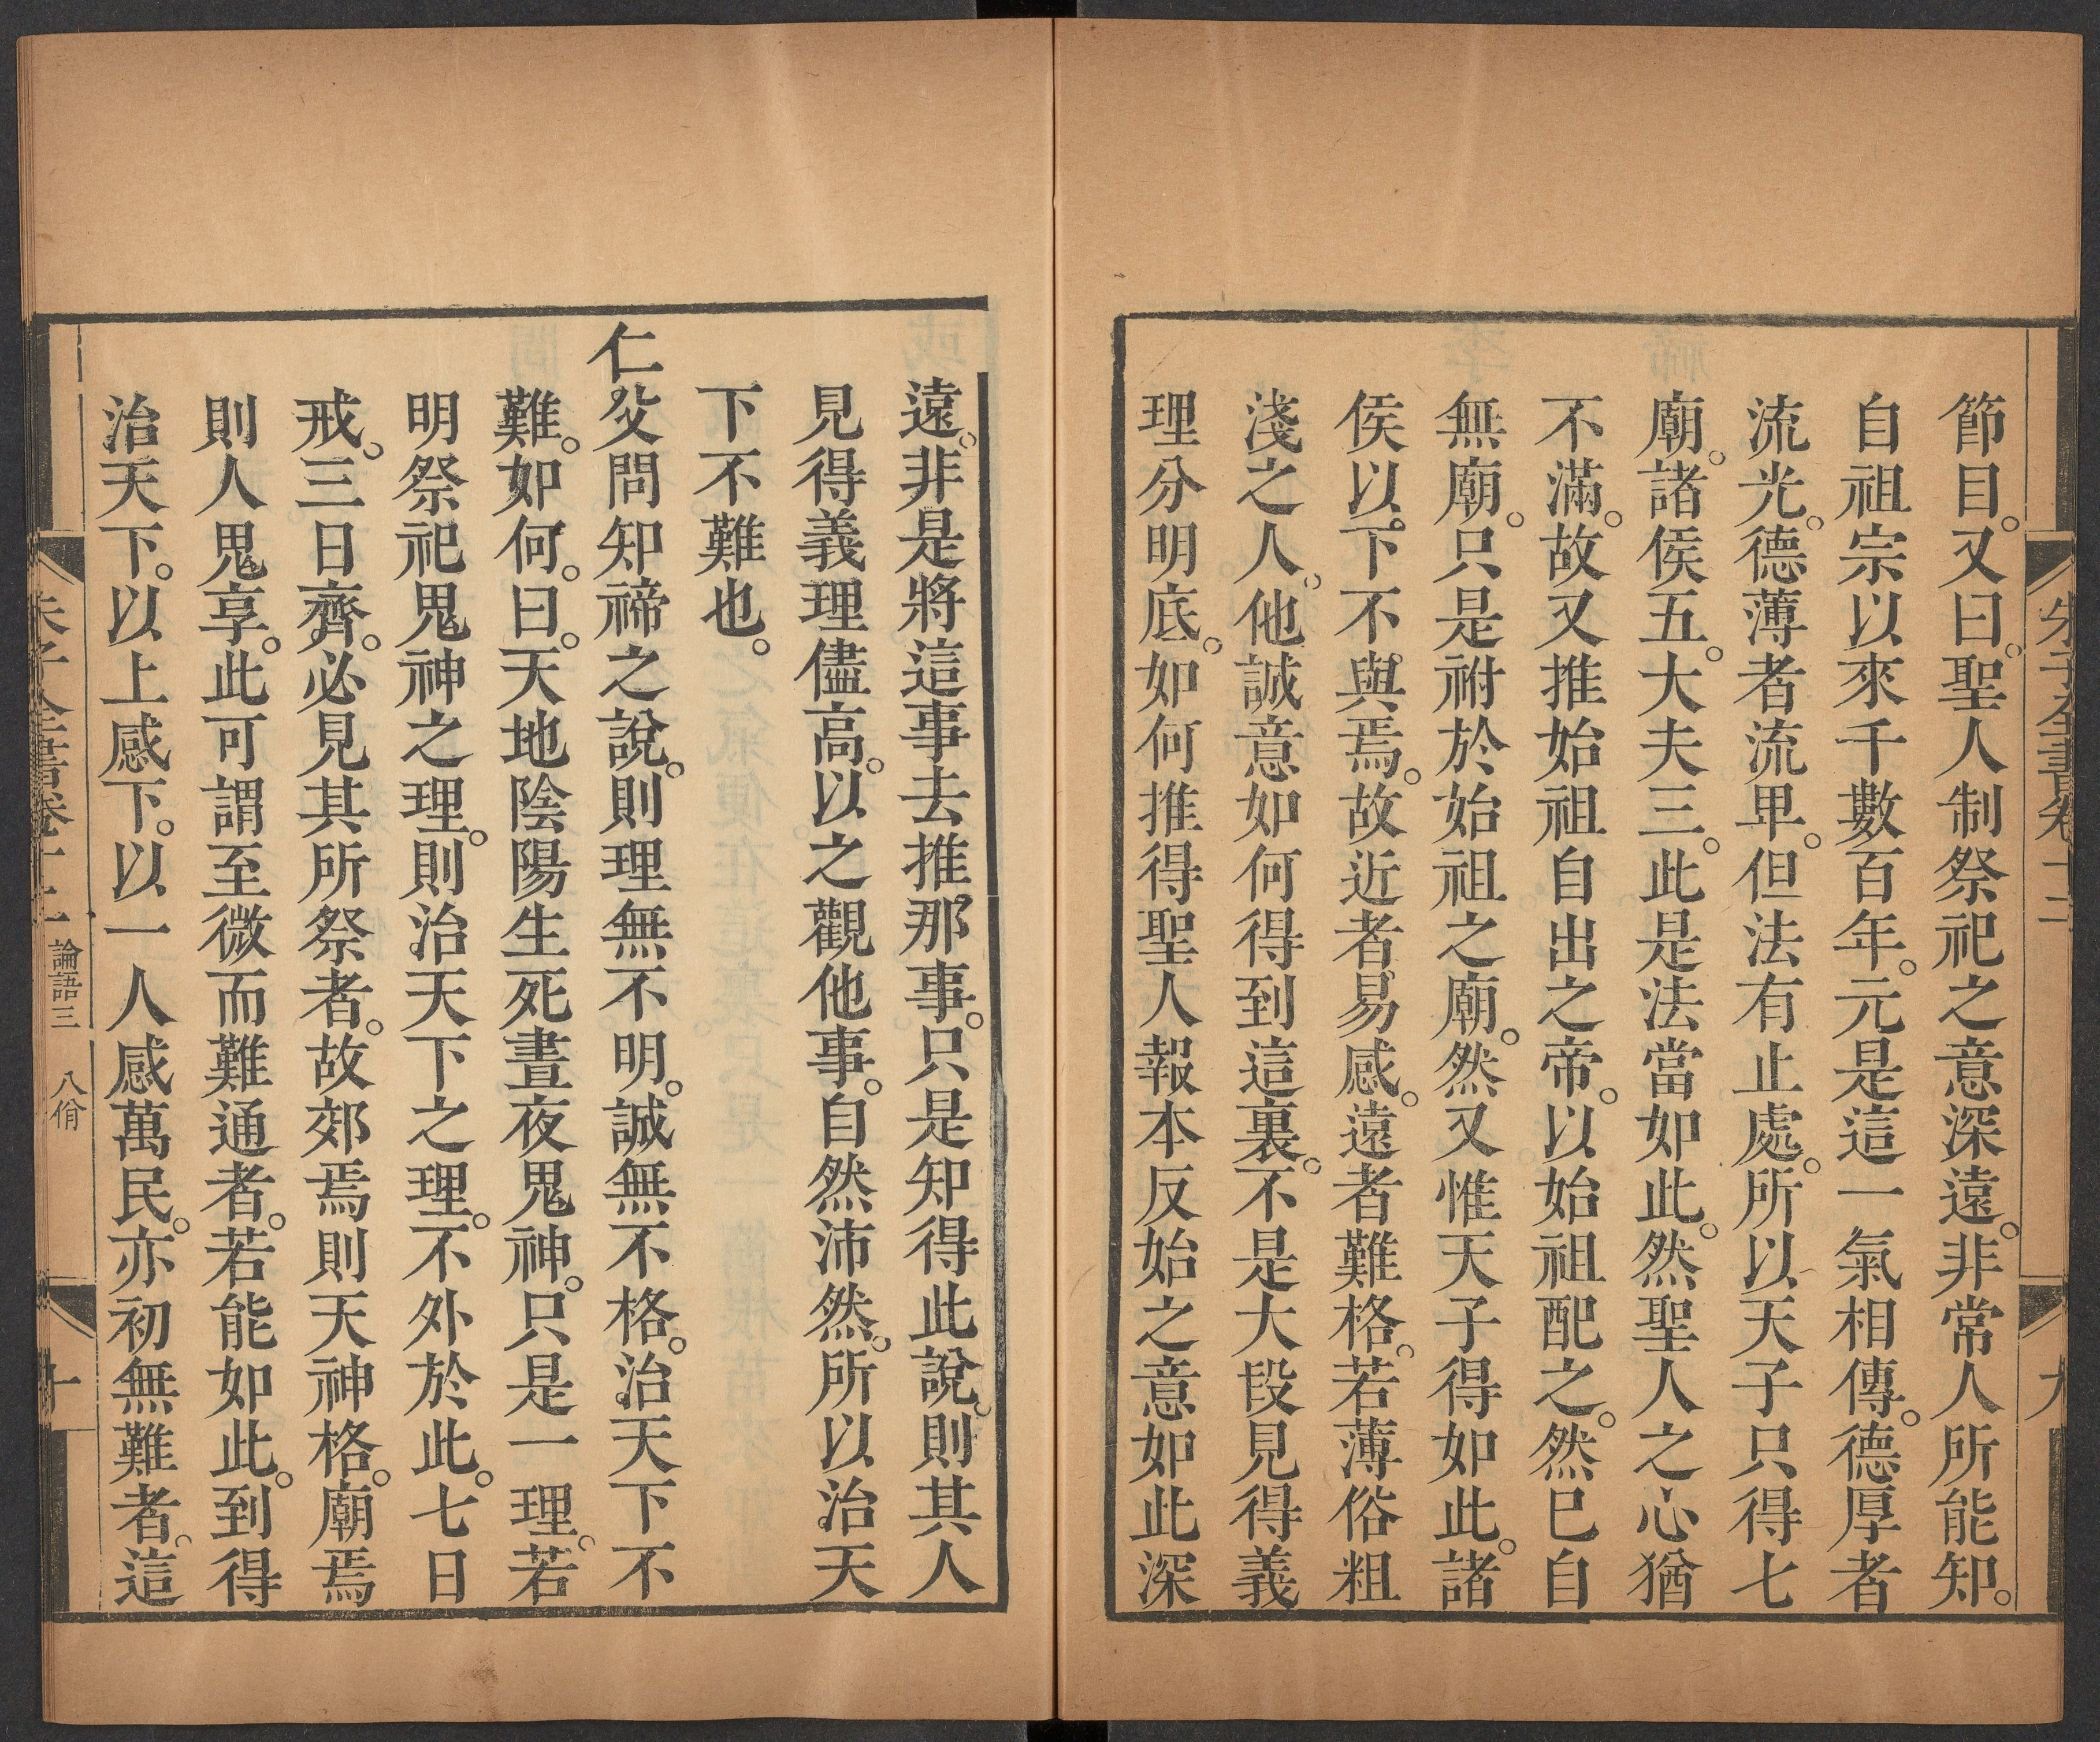 節目。又曰。聖人制祭祀之意深遠。非常人所能知。
自祖宗以來千數百年。元是這一氣相傳。德厚者
流光。德薄者流卑。但法有止處。所以天子只得七
廟。諸侯五。大夫三。此是法當如此。然聖人之心猶
不滿。故又推始祖自出之帝。以始祖配之。然已自
無廟。只是祔於始祖之廟。然又惟天子得如此。諸
侯以下不與焉。故近者易感。遠者難格。若薄俗粗
淺之人。他誠意如何得到這裏。不是大段見得義
理分明底。如何推得聖人報本反始之意如此深
遠。非是將這事去推那事。只是知得此說。則其人
見得義理儘高。以之觀他事。自然沛然。所以治天
下不難也。
仁父問知禘之說。則理無不明。誠無不格。治天下不
難。如何。曰。天地陰陽生死晝夜鬼神。只是一理。若
明祭祀鬼神之理。則治天下之理。不外於此。七日
戒。三日齊。必見其所祭者。故郊焉則天神格。廟焉
則人鬼享。此可謂至微而難通者。若能如此。到得
治天下。以上感下。以一人感萬民。亦初無難者。這
朱子全書卷十二 論語三 八佾